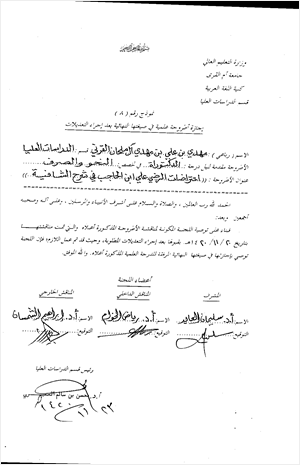 بسم الله الرحمن الرحيم
وزارة التعليم العالي
جامعة أم القرى
كلية اللغة العربية
قسم الدراسات العليا
نموذج رقم ( ٨ )
إجازة أطروحة علمية في صيغتها النهائية بعد إجراء التعديلات
الاسم ( رباعي ) مهدي بن علي بن مهدي آل ملحان القرني الدراسات العليا
الأطروحة مقدمة لنيل درجة : الدكتوراة في تخصص : النحو والصرف
عنوان الأطروحة : (( اعتراضات الرضي على ابن الحاجب في شرح الشافية ))
الحمد لله رب العالمين ، والصلاة والسلام على أشرف الأنبياء والمرسلين ، وعلى آله وصحبه
أجمعين وبعد :
فبناء على توصية اللجنة المكونة لمناقشة الأطروحة المذكورة أعلاه ، والتي تمت مناقشتها
بتاريخ ٢٠ / ١١ / ١٤٢٠هـ بقبولها بعد إجراء التعديلات المطلوبة ، وحيث قد تم عمل اللازم ، فإن اللجنة
توصي بإجازتها في صيغتها النهائية المرفقة للدرجة العلمية المذكورة أعلاه . والله الموفق
أعضاء اللجنة
المشرف
المناقش الداخلي
المناقش الخارجي
الاسم أ.د. سليمان العايد
الاسم أ.د. رياض الخوام
الاسم أ.د. إبراهيم الشمسان
التوقيع
التوقيع
التوقيع
رئيس قسم الدراسات العليا
د. محسن بن سالم العميري